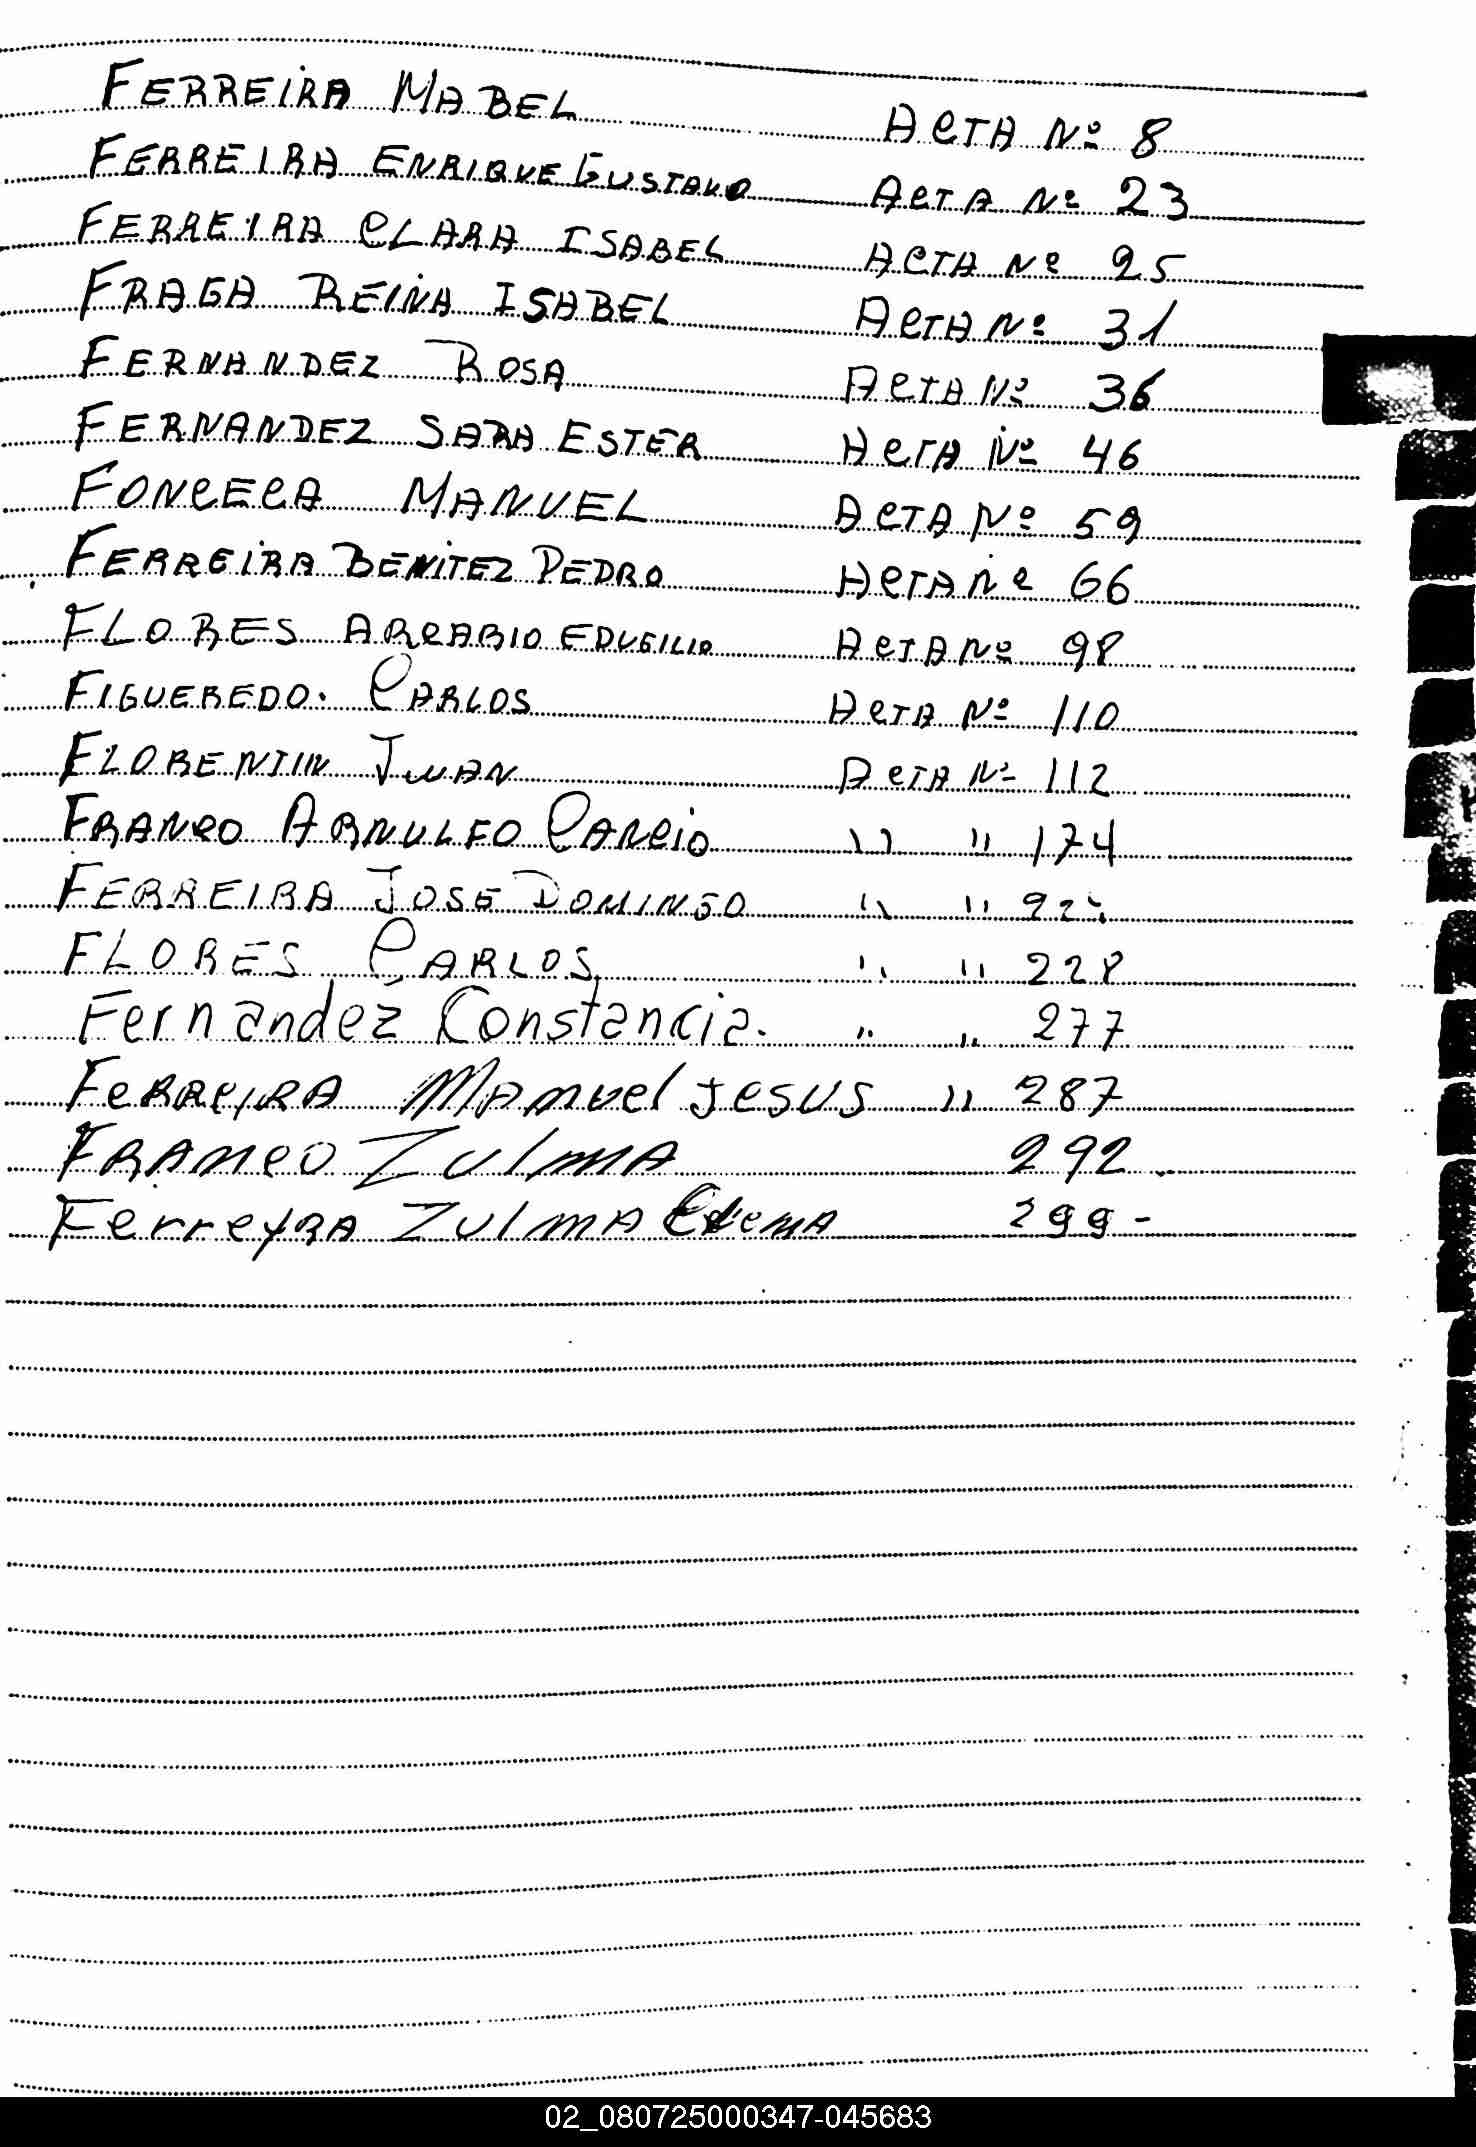 FERREIRA MABEL ACTA Nº 8
FERREIRA ENRIQUE GUSTAVO ACTA Nº 23
FERREIRA CLARA ISABEL ACTA Nº 25
FRAGA REINA ISABEL ACTA Nº 31
FERNANDEZ ROSA ACTA Nº 36
FERNANDEZ SARA ESTER ACTA Nº 46
FONCECA MANUEL ACTA Nº 59
FERREIRA BENITEZ PEDRO ACTA Nº 66
FLORES ARCADIO EDUGILIO ACTA Nº 98
FIGUEREDO. CARLOS ACTA Nº 110
FLORENTIN JUAN ACTA Nº 112
FRANCO ARNULFO CANCIO " " 174
FERREIRA JOSE DOMINGO " "
FLORES CARLOS " " 228
Fernández Constancia. " " 277
FerreirA MAnuel Jesus " 287
FRANCO ZulmA 292
FerreyRA ZulmA 299-
02_080725000347-045683